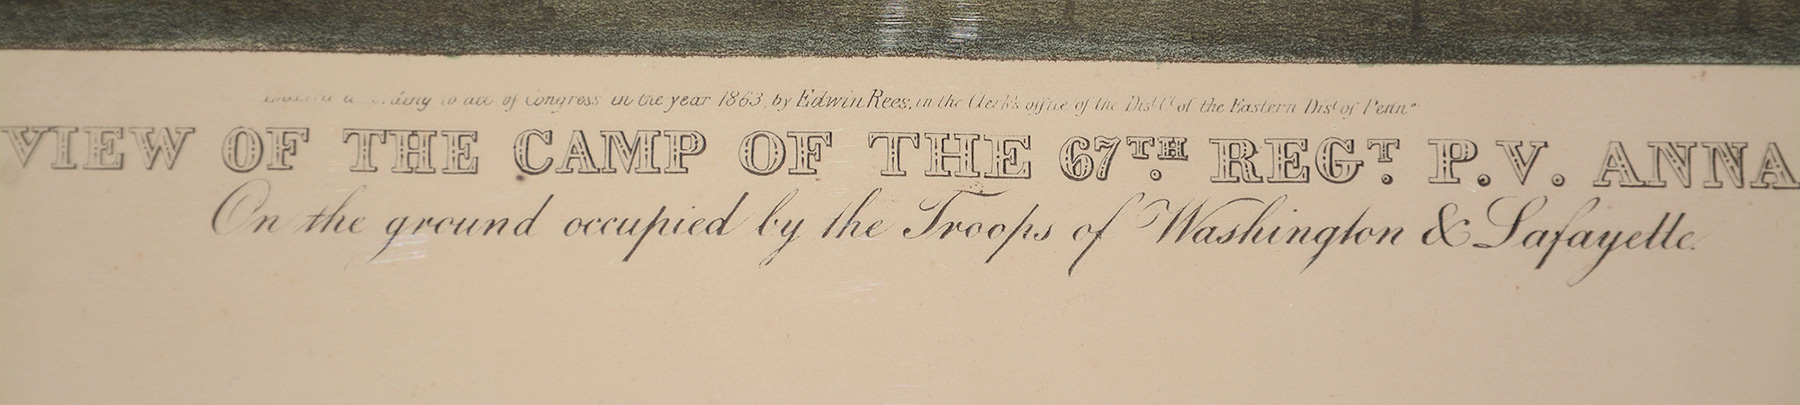 to act of Congress in the year 1863, by Edwin Rees, in the Clerk's office of the Dist. Ct. of the Eastern Dist. of Penna.
VIEW OF THE CAMP OF THE 67TH. REGT. P.V. ANNA
On the ground occupied by the Troops of Washington & Lafayette.